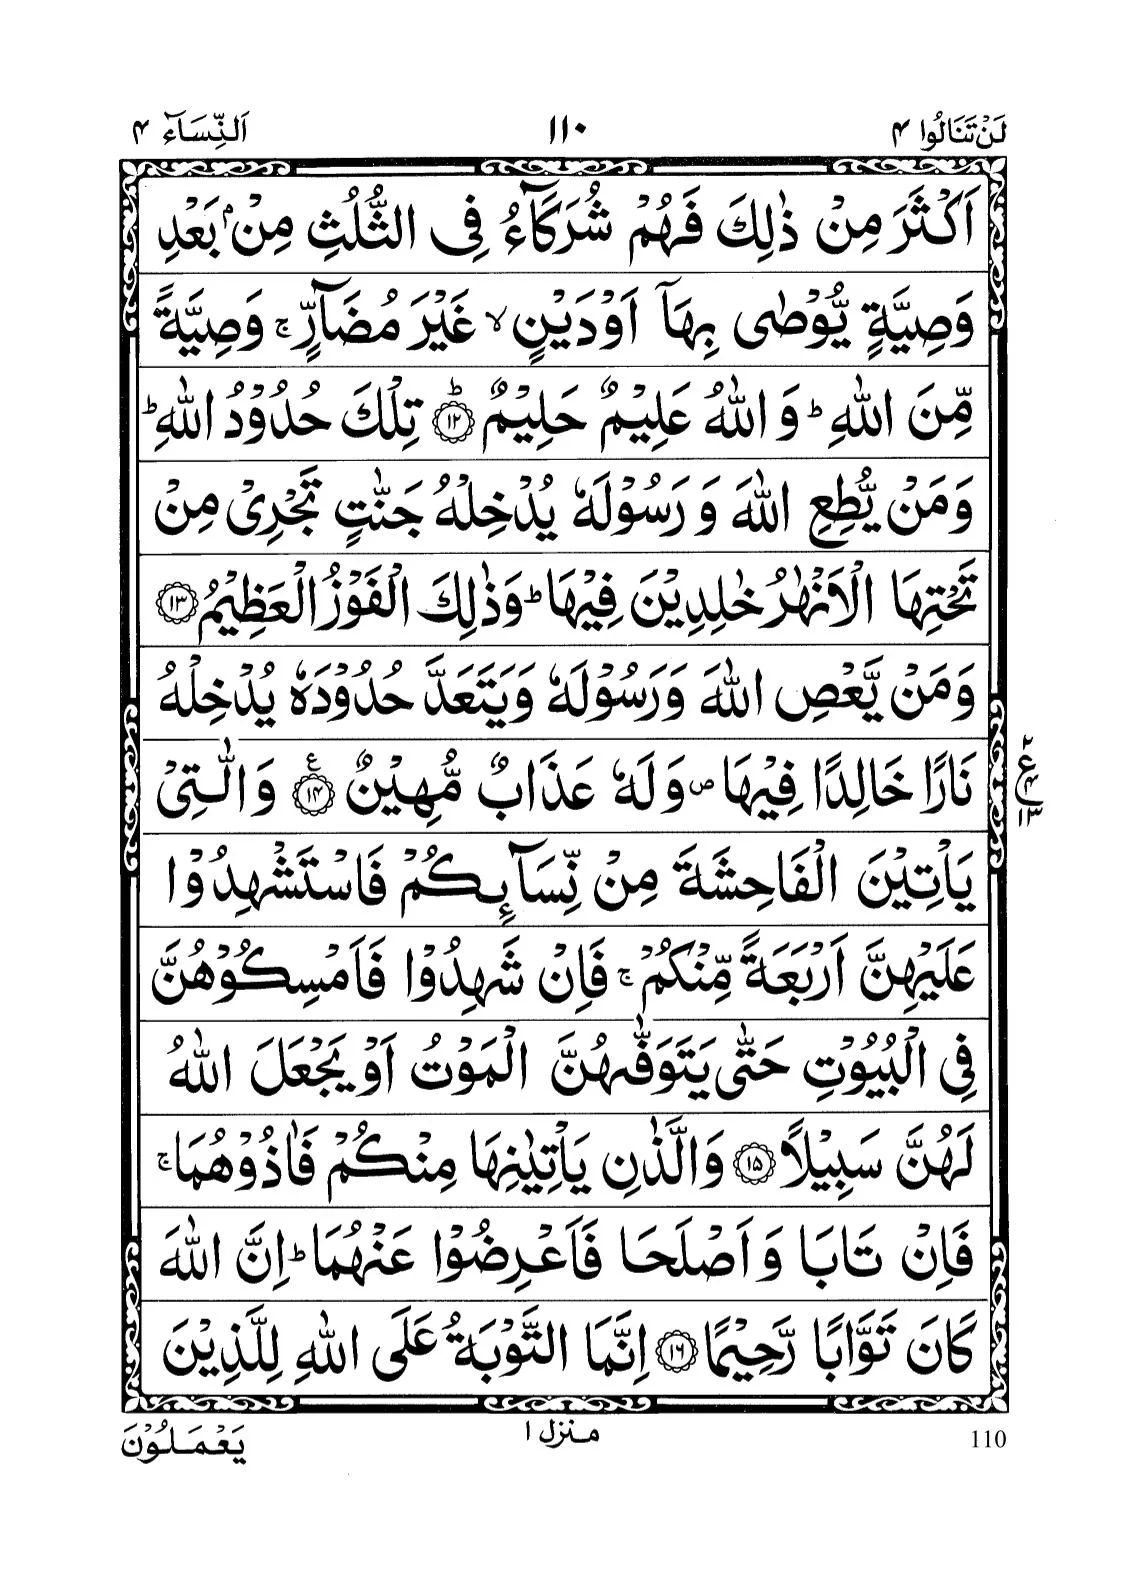 لَنْ تَنَالُوا ۴ ١١٠ اَلنِّسَآء ۴
اَكْثَرَ مِنْ ذٰلِكَ فَهُمْ شُرَكَآءُ فِى الثُّلُثِ مِنْۢ بَعْدِ
وَصِيَّةٍ يُّوْصٰى بِهَآ اَوْدَيْنٍ ۙ غَيْرَ مُضَآرٍّ ۚ وَصِيَّةً
مِّنَ اللّٰهِ ؕ وَ اللّٰهُ عَلِيْمٌ حَلِيْمٌ ؕ ﴿۱۲﴾ تِلْكَ حُدُوْدُ اللّٰهِ ؕ
وَمَنْ يُّطِعِ اللّٰهَ وَ رَسُوْلَهٗ يُدْخِلْهُ جَنّٰتٍ تَجْرِىْ مِنْ
تَحْتِهَا الْاَنْهٰرُ خٰلِدِيْنَ فِيْهَا ؕ وَذٰلِكَ الْفَوْزُ الْعَظِيْمُ ﴿۱۳﴾
وَمَنْ يَّعْصِ اللّٰهَ وَرَسُوْلَهٗ وَيَتَعَدَّ حُدُوْدَهٗ يُدْخِلْهُ
نَارًا خَالِدًا فِيْهَا ۖ وَلَهٗ عَذَابٌ مُّهِيْنٌ ﴿۱۴﴾ ع وَالّٰتِىْ
۲ ع ۴ ۱۳
يَاْتِيْنَ الْفَاحِشَةَ مِنْ نِّسَآىِٕكُمْ فَاسْتَشْهِدُوْا
عَلَيْهِنَّ اَرْبَعَةً مِّنْكُمْ ۚ فَاِنْ شَهِدُوْا فَاَمْسِكُوْهُنَّ
فِى الْبُيُوْتِ حَتّٰى يَتَوَفّٰهُنَّ الْمَوْتُ اَوْ يَجْعَلَ اللّٰهُ
لَهُنَّ سَبِيْلًا ﴿۱۵﴾ وَالَّذٰنِ يَاْتِيٰنِهَا مِنْكُمْ فَاٰذُوْهُمَا ۚ
فَاِنْ تَابَا وَ اَصْلَحَا فَاَعْرِضُوْا عَنْهُمَا ؕ اِنَّ اللّٰهَ
كَانَ تَوَّابًا رَّحِيْمًا ﴿۱۶﴾ اِنَّمَا التَّوْبَةُ عَلَى اللّٰهِ لِلَّذِيْنَ
110 منزل ١ يَعْمَلُوْنَ